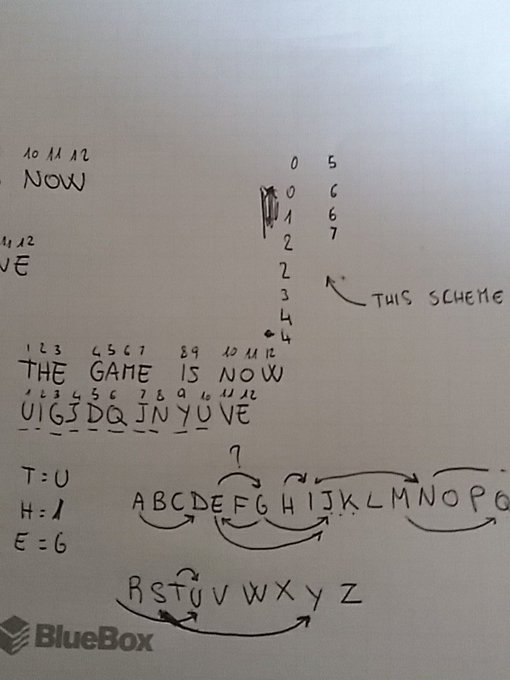 10 11 12
NOW
0 5
0 6
1 6
2 7
11 12
VE
2
3
4
4
THIS SCHEME
1 2 3 4 5 6 7 8 9 10 11 12
THE GAME IS NOW
1 2 3 4 5 6 7 8 9 10 11 12
UIGJDQJNYUVE
?
T=U
H=1
E=G
ABCDEFGHIJKLMNOPQ
RSTUVWXYZ
BlueBox